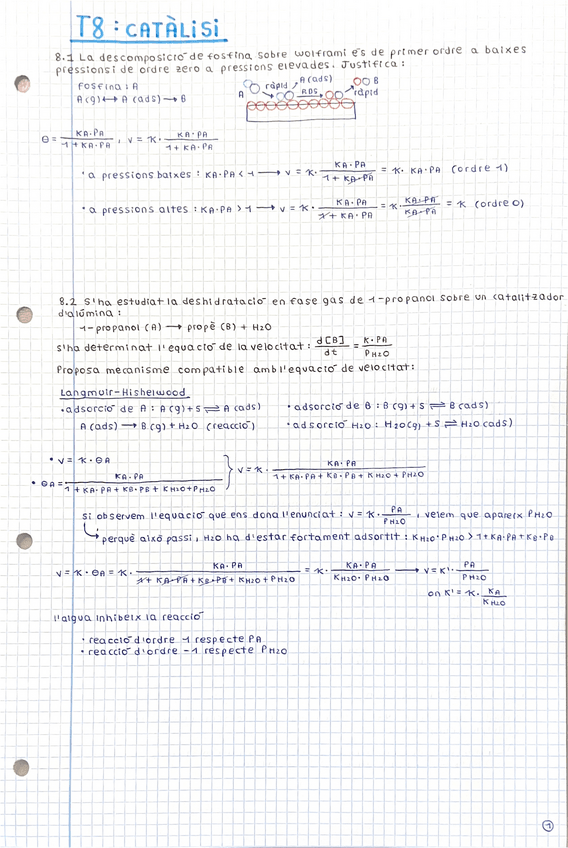 T8: CATÀLISI
8.1 La descomposició de fosfina sobre wolframi és de primer ordre a baixes
pressions i de ordre zero a pressions elevades. Justifica:
Fosfina: A
A(g) ⟷ A (ads) → B
A ràpid A(ads) RDS B ràpid
θ = KA·PA / 1 + KA·PA , v = K · KA·PA / 1 + KA·PA
· a pressions baixes: KA·PA < 1 → v = K · KA·PA / 1 + KA·PA = K · KA·PA (ordre 1)
· a pressions altes: KA·PA > 1 → v = K · KA·PA / 1 + KA·PA = K · KA·PA / KA·PA = K (ordre 0)
8.2 S'ha estudiat la deshidratació en fase gas de 1-propanol sobre un catalitzador
d'alúmina:
1-propanol (A) → propè (B) + H2O
S'ha determinat l'equació de la velocitat: d[B] / dt = K·PA / PH2O
Proposa mecanisme compatible amb l'equació de velocitat:
Langmuir-Hishelwood
· adsorció de A: A(g) + S ⇌ A (ads)
· adsorció de B: B(g) + S ⇌ B(ads)
A(ads) → B(g) + H2O (reacció)
· adsorció H2O: H2O(g) + S ⇌ H2O (ads)
· v = K · θA
· θA = KA·PA / 1 + KA·PA + KB·PB + KH2O + PH2O } v = K · KA·PA / 1 + KA·PA + KB·PB + KH2O + PH2O
Si observem l'equació que ens dona l'enunciat: v = K · PA / PH2O , veiem que apareix PH2O
perquè això passi, H2O ha d'estar fortament adsortit: KH2O·PH2O > 1 + KA·PA + KB·PB
v = K · θA = K · KA·PA / 1 + KA·PA + KB·PB + KH2O + PH2O = K · KA·PA / KH2O·PH2O → v = K' · PA / PH2O
on K' = K · KA / KH2O
l'aigua inhibeix la reacció
· reacció d'ordre 1 respecte PA
· reacció d'ordre -1 respecte PH2O
1